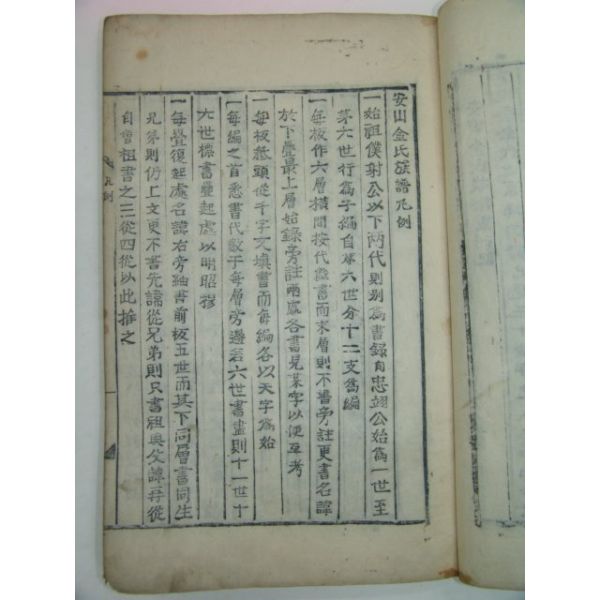 安山金氏族譜凡例
一始祖僕射公以下兩代則別為書錄自忠翊公始為一世至
第六世行為子編自第六世分十二支為編
一每板作六層橫間按代滋書而末層則不書旁註更書名諱
於下疊最上層始錄旁註兩處各書見某字以便互考
一每板紙頭從千字文塡書而每編各以天字為始
一每編之首悉書代數于每層旁邊若六世書盡則十一世十
六世標書疊起處以明昭穆
一每疊復起處名諱右旁細書前板五世而其下同層書同生
兄弟則仍上文更不書先諱從兄弟則只書祖與父諱再從
自曾祖書之三從四從以此推之
凡例